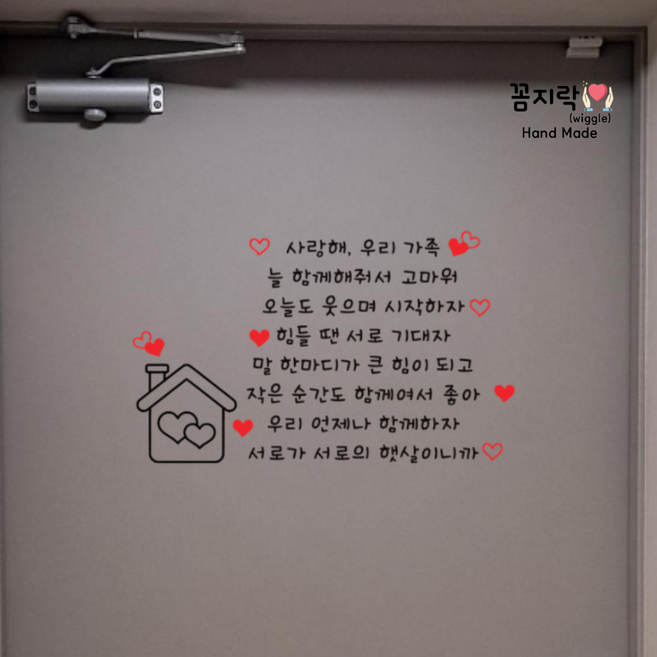 꼼지락
(wiggle)
Hand Made
사랑해, 우리 가족
늘 함께해줘서 고마워
오늘도 웃으며 시작하자
힘들 땐 서로 기대자
말 한마디가 큰 힘이 되고
작은 순간도 함께여서 좋아
우리 언제나 함께하자
서로가 서로의 햇살이니까